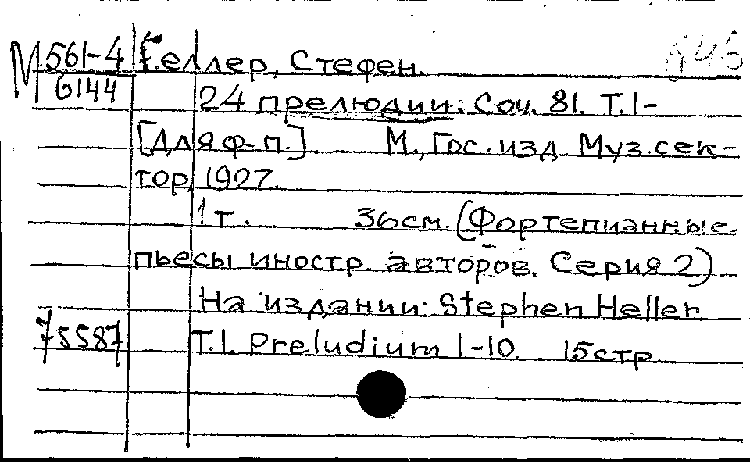 М 561-4 Геллер, Стефен.
6144 24 прелюдии: Соч. 81. Т.1-
[Для ф-п.] М., Гос. изд. Муз. сек-
тор, 1927.
1 т. 36см. (Фортепианные
пьесы иностр. авторов. Серия 2)
На издании: Stephen Heller
75587 Т.1. Preludium 1-10. 15 стр